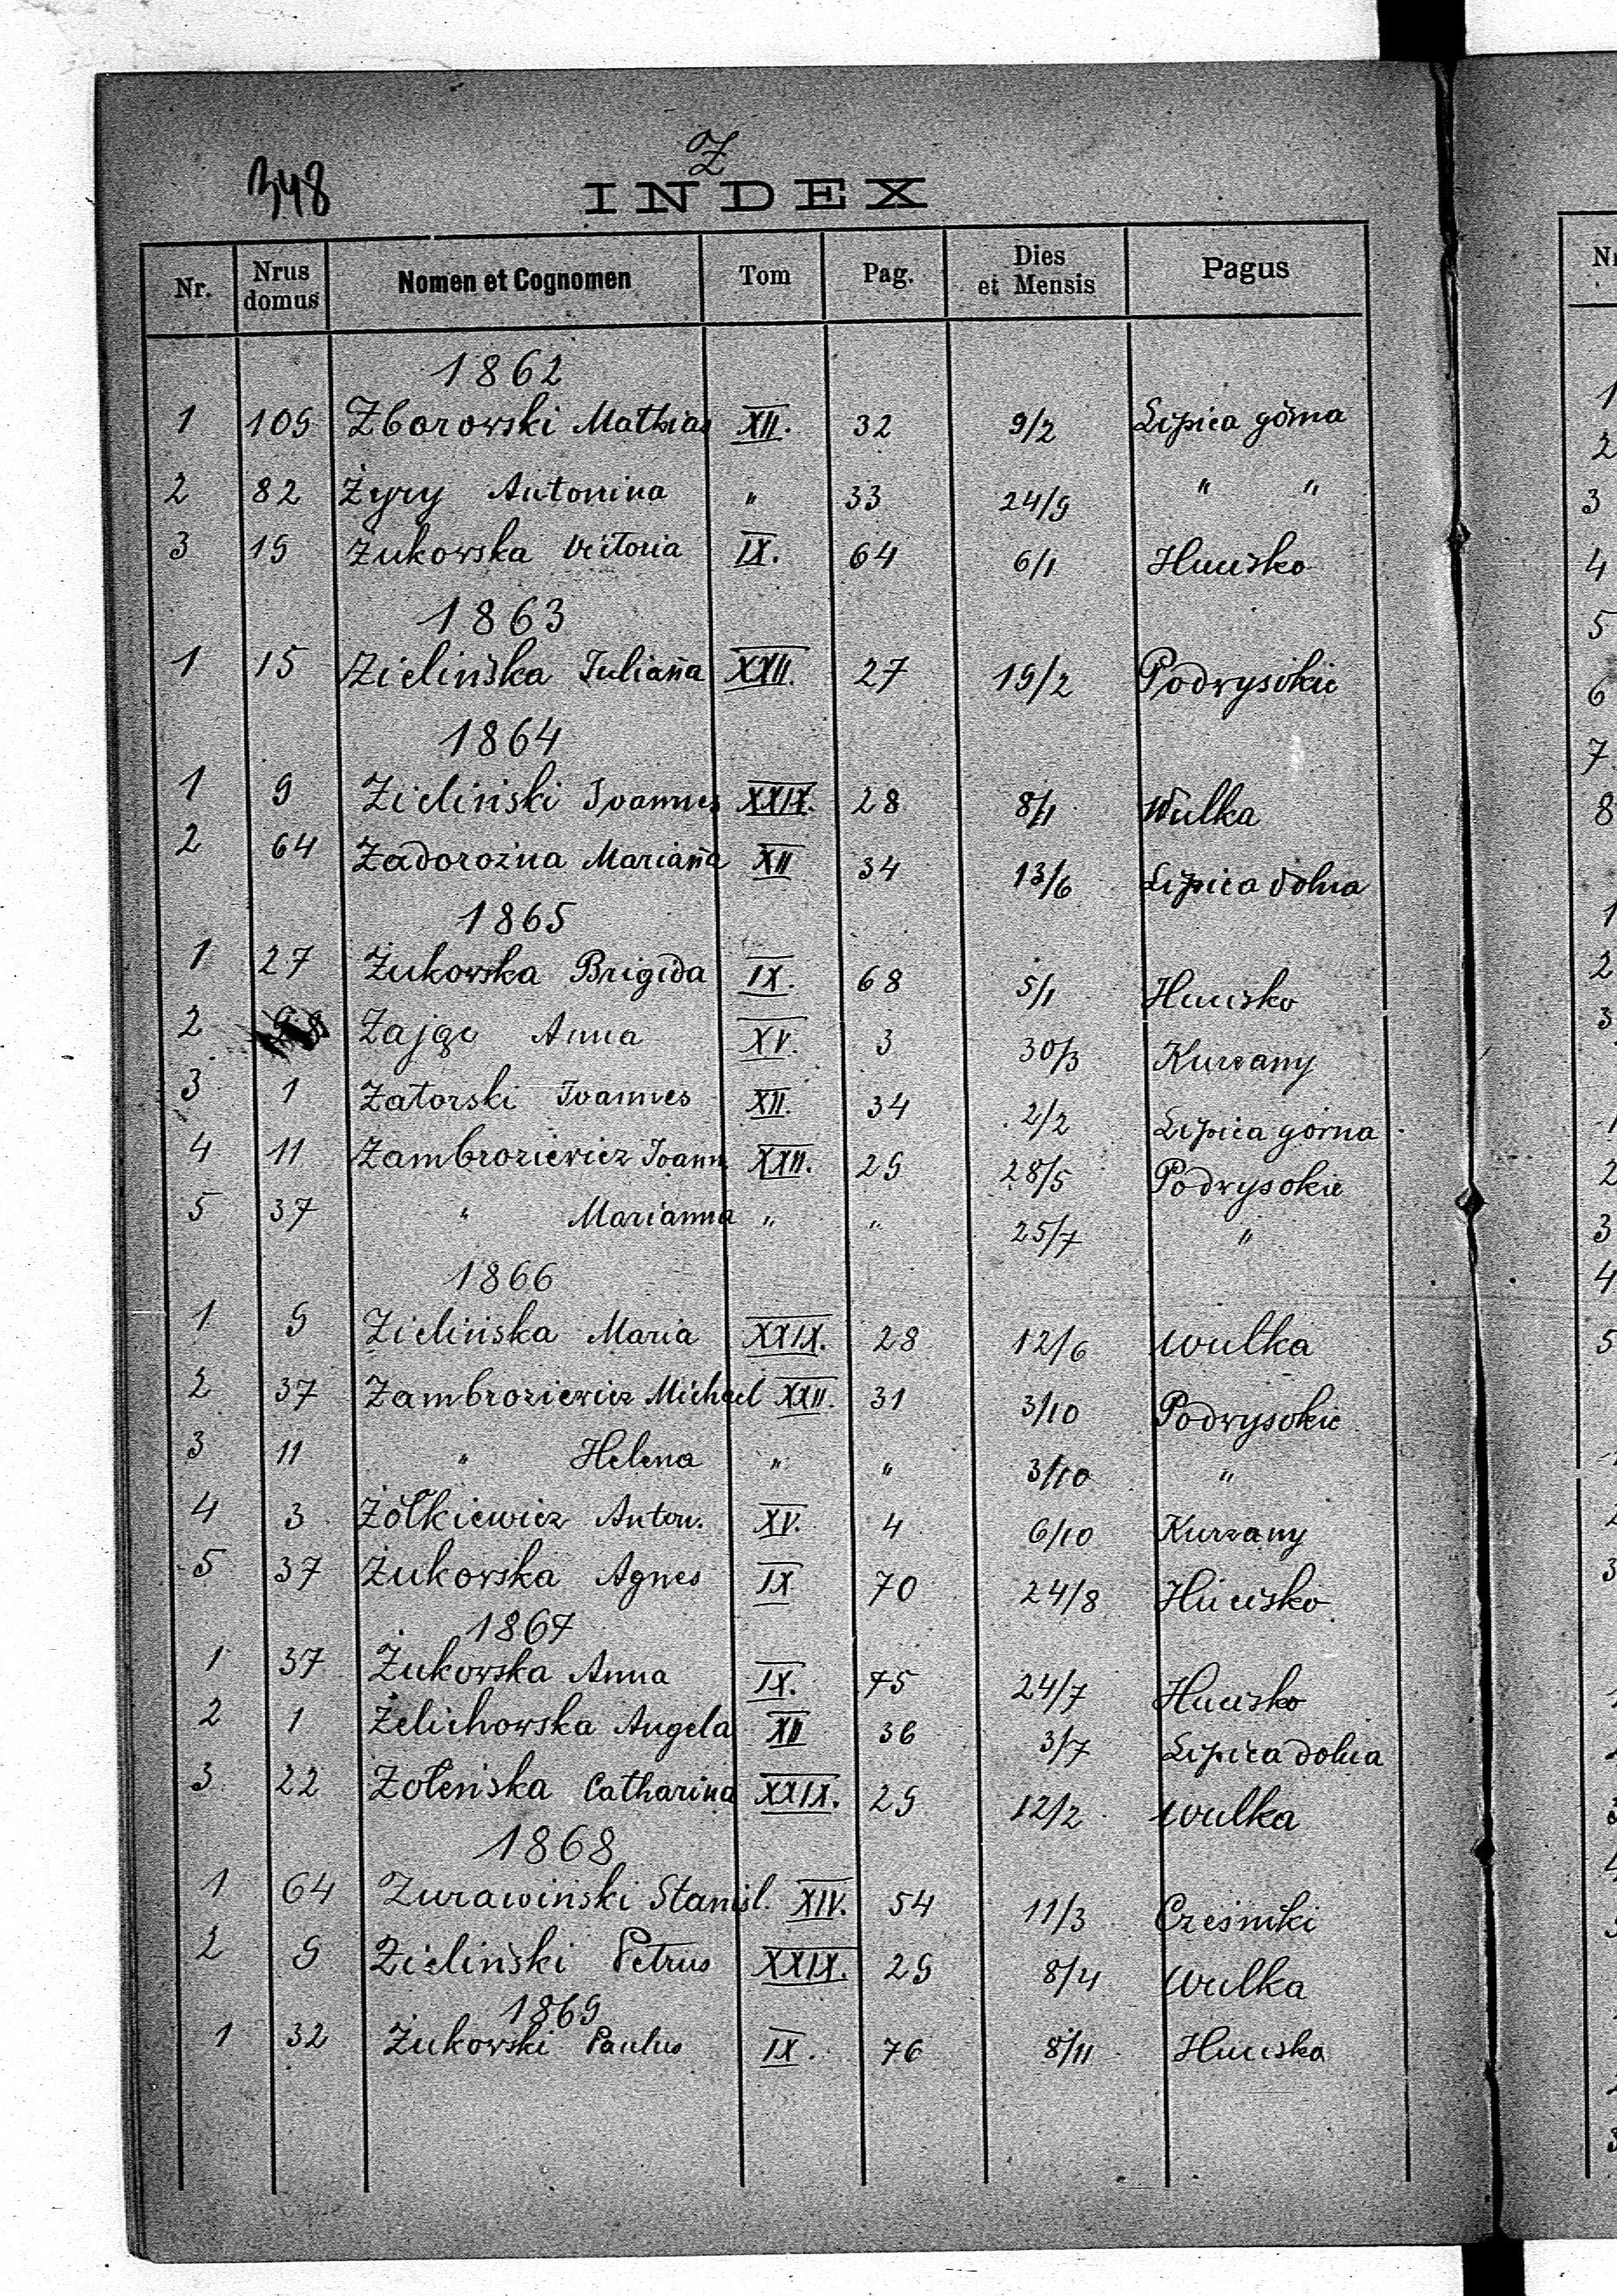 348
Z
INDEX
Nr. Nrus domus Nomen et Cognomen Tom Pag. Dies et Mensis Pagus
1862
1 109 Zborowski Mathias XII. 32 9/2 Lipica górna
2 82 Żyry Antonina " 33 24/9 " "
3 19 Żukowska Victoria IX. 64 6/1 Hucisko
1863
1 15 Zielińska Julianna XXII. 27 19/2 Podwysokie
1864
1 9 Zieliński Joannes XXIX. 28 8/1 Wulka
2 64 Zadorożna Marianna XII 34 13/6 Lipica dolna
1865
1 27 Żukowska Brigida IX. 68 5/1 Hucisko
2 Zając Anna XV. 3 30/3 Kurzany
3 1 Zatorski Joannes XII. 34 2/2 Lipica górna
4 11 Zambroziewicz Joann XXII. 29 28/5 Podwysokie
5 37 " Marianna " " 25/7 "
1866
1 9 Zielińska Maria XXIX. 28 12/6 Wulka
2 37 Zambroziewicz Michael XXII. 31 3/10 Podwysokie
3 11 " Helena " " 3/10 "
4 3 Żółkiewicz Anton. XV. 4 6/10 Kurzany
5 37 Żukowska Agnes IX 70 24/8 Hucisko
1867
1 37 Żukowska Anna IX. 75 24/7 Hucisko
2 1 Żelichowska Angela XII 36 3/7 Lipica dolna
3 22 Zoleńska Catharina XXIX. 29 12/2 Wulka
1868
1 64 Zurawiński Stanisl. XIV. 54 11/3 Cześniki
2 9 Zieliński Petrus XXIX. 29 8/4 Wulka
1869
1 32 Żukowski Paulus IX. 76 8/11 Hucisko